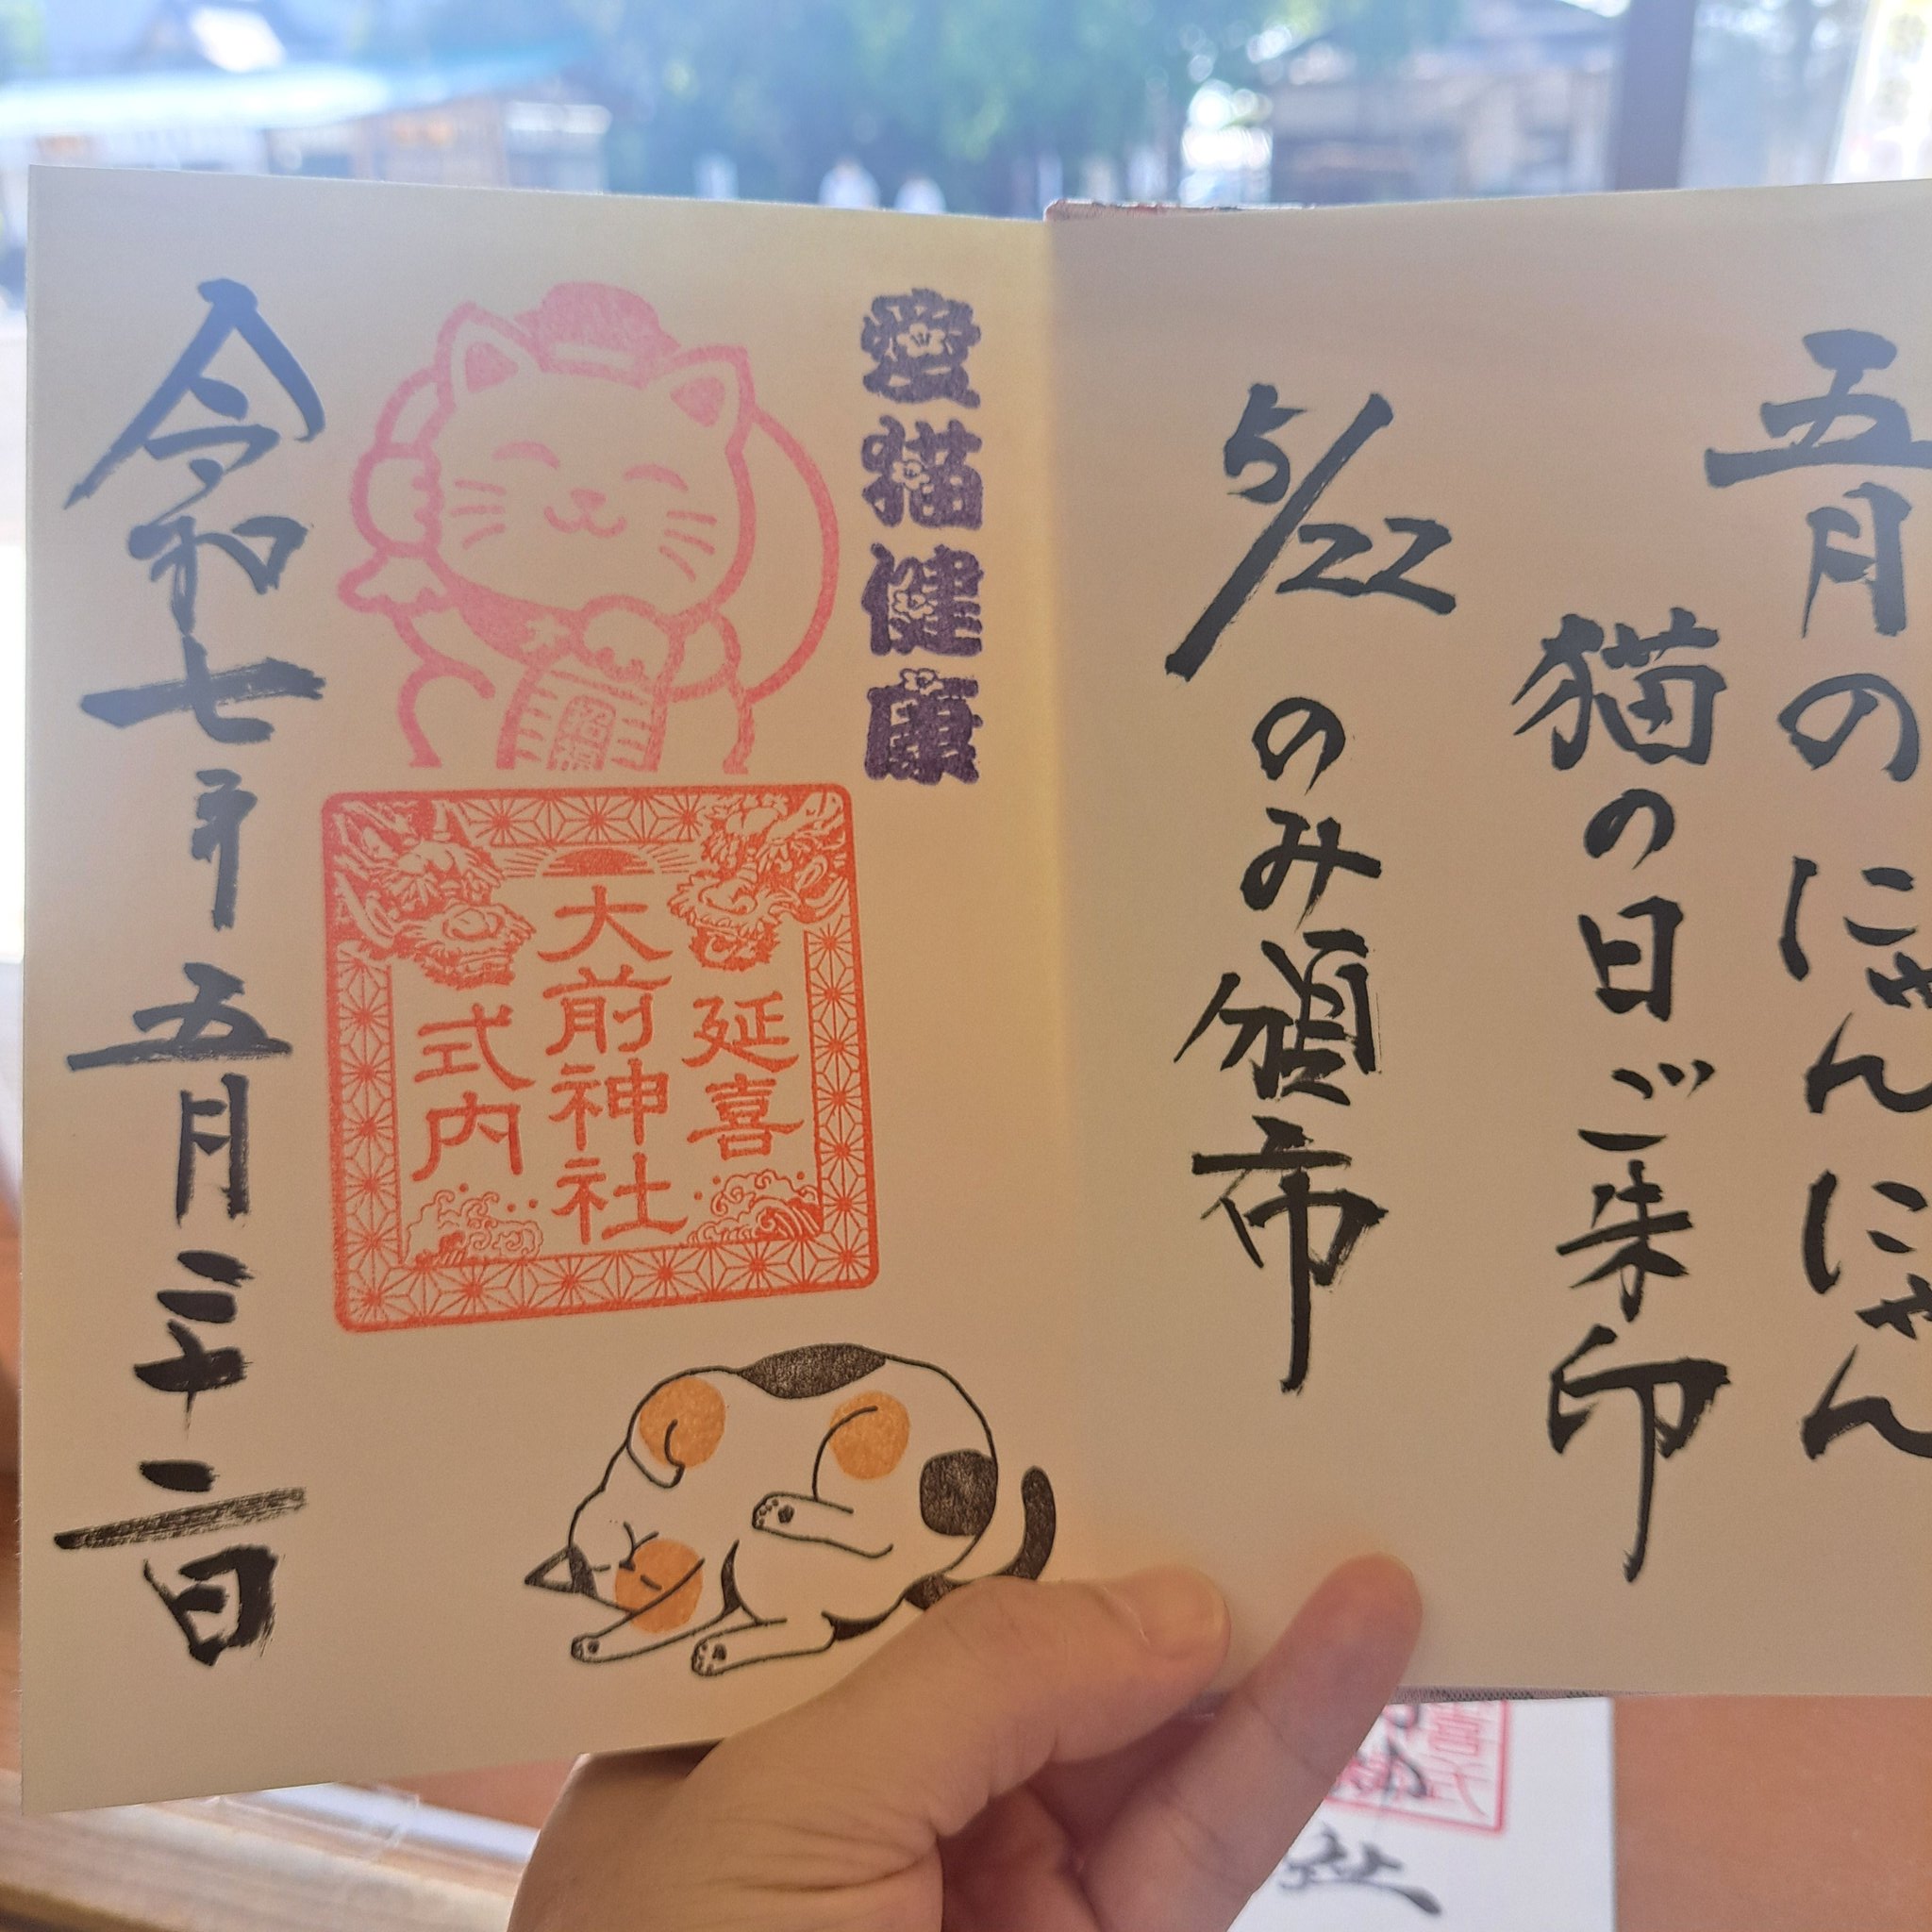 五月のにゃんにゃん
猫の日ご朱印
5/22のみ頒布
愛猫健康
招福
延喜
大前神社
式内
令和七年五月二十二日
社